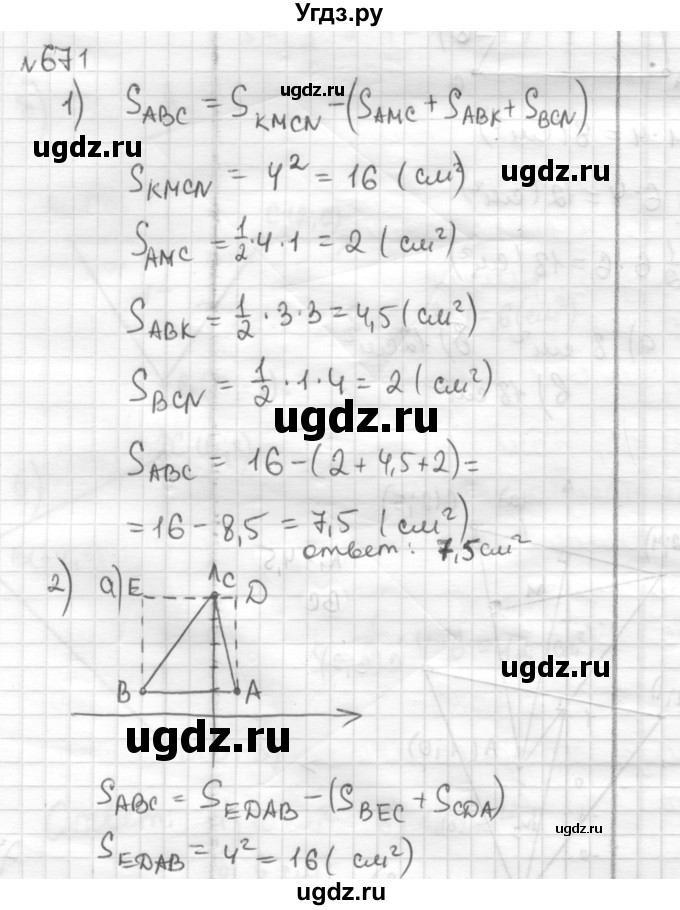 Угдз.ру
№671
ugdz.ru
1) S_ABC = S_KMCN - (S_AMC + S_ABK + S_BCN)
ugdz.ru
S_KMCN = 4² = 16 (см²)
ugdz.ru
S_AMC = 1/2 · 4 · 1 = 2 (см²)
S_ABK = 1/2 · 3 · 3 = 4,5 (см²)
S_BCN = 1/2 · 1 · 4 = 2 (см²)
ugdz.ru
S_ABC = 16 - (2 + 4,5 + 2) =
= 16 - 8,5 = 7,5 (см²)
ответ: 7,5 см²
2) а) E C D
ugdz.ru
B A
ugdz.ru
S_ABC = S_EDAB - (S_BEC + S_CDA)
ugdz.ru
S_EDAB = 4² = 16 (см²)
ugdz.ru